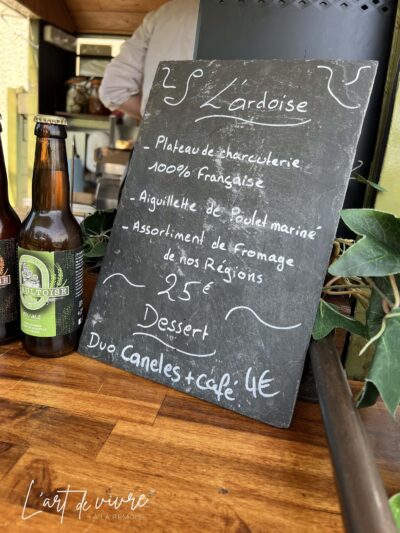 L'ardoise
- Plateau de charcuterie
100% Française
- Aiguillette de Poulet mariné
- Assortiment de fromage
de nos Régions
25€
Dessert
Duo Caneles + café 4€
L'art de vivre
À LA RÉMOISE